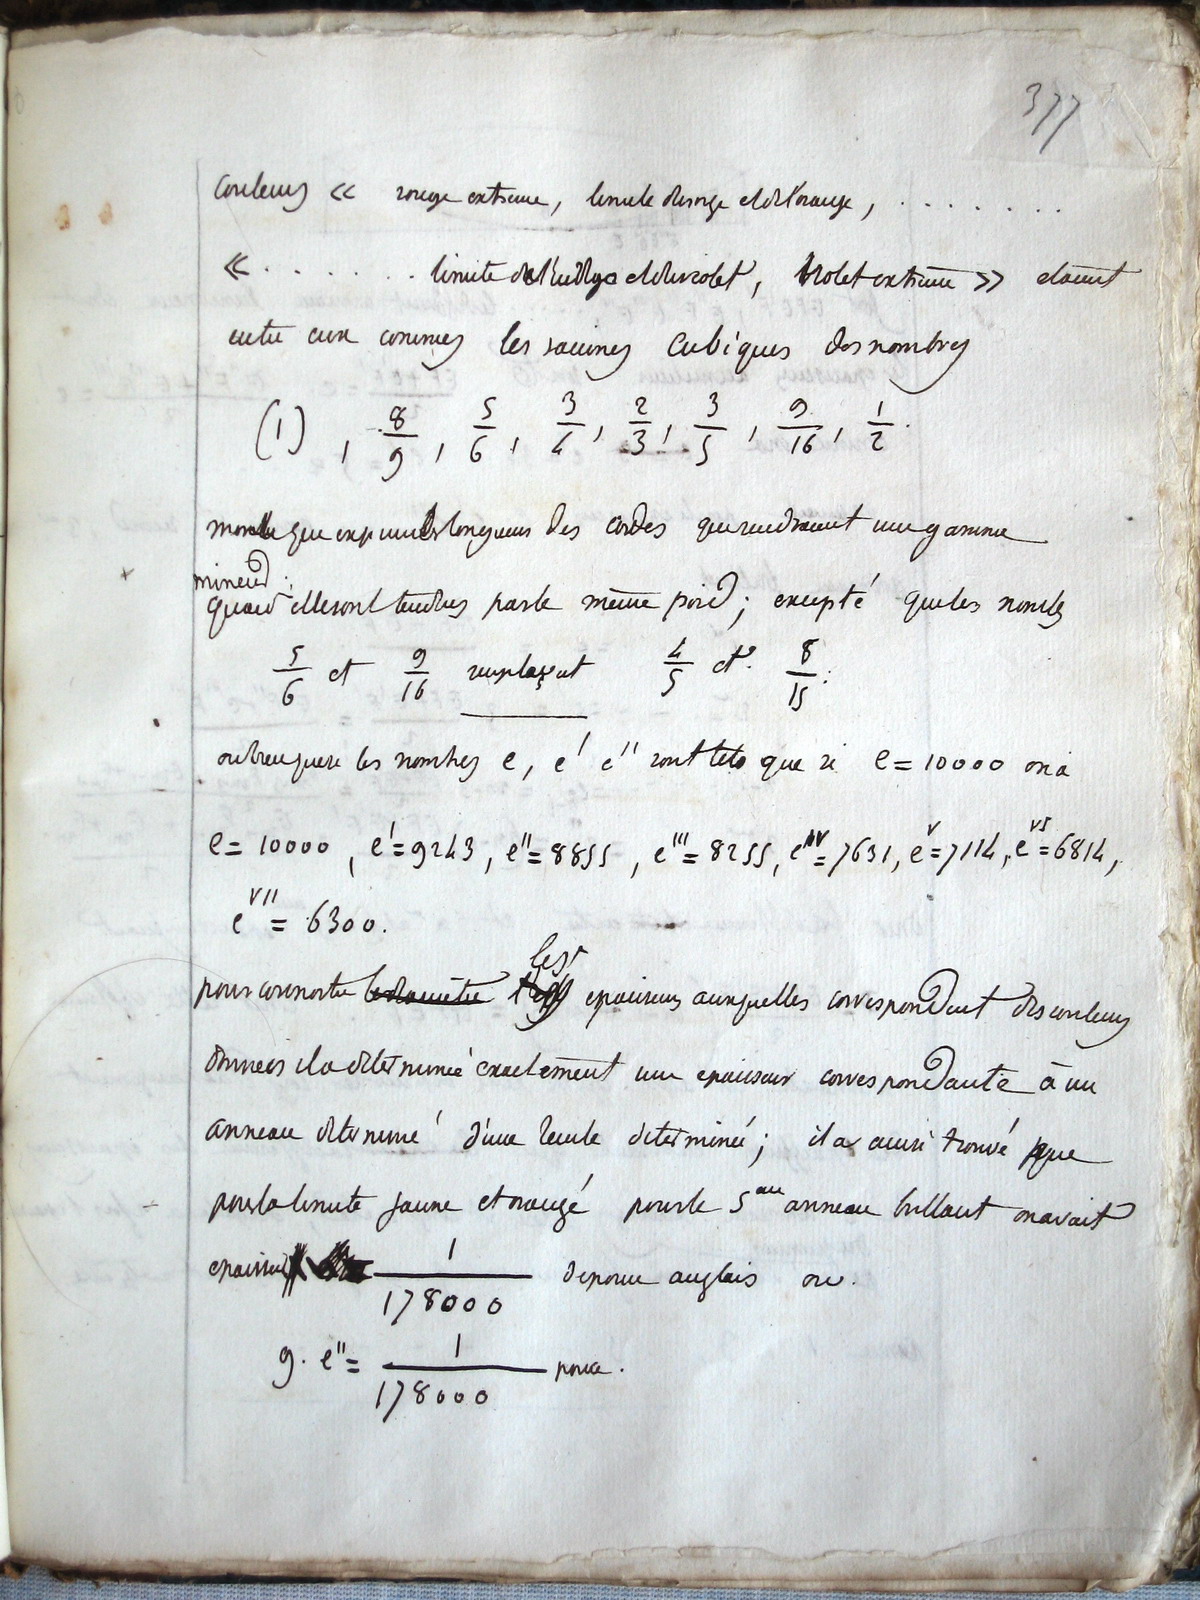 377
Couleurs << rouge extreme, limite du rouge et de l'orange, ........
<< ....... limite de l'indigo et du violet, violet extreme >> etaient
entre eux comme les racines cubiques des nombres
(1), 8/9, 5/6, 3/4, 2/3, 3/5, 9/16, 1/2.
nombre qui exprime les longueurs des cordes qui rendraient une gamme
mineur
quand elles sont tendues par le même poid; excepté que les nombres
5/6 et 9/16 remplaçent 4/5 et 8/15.
les nombres e, e' e'' sont tels que si e = 10000 on a
e = 10000, e' = 9243, e'' = 8855, e''' = 8255, e^IV = 7631, e^V = 7114, e^VI = 6814,
e^VII = 6300.
les
pour connoitre epaisseurs auxquelles correspondent des couleurs
données il a determiné exactement une epaisseur correspondante à un
anneau determiné d'une teinte determinée; il a ainsi trouvé que
pour la limite jaune et orangé pour le 5eme anneau brillant on avait
epaisseur 1/178000 de pouce anglais ou.
9. e'' = 1/178000 pouce.